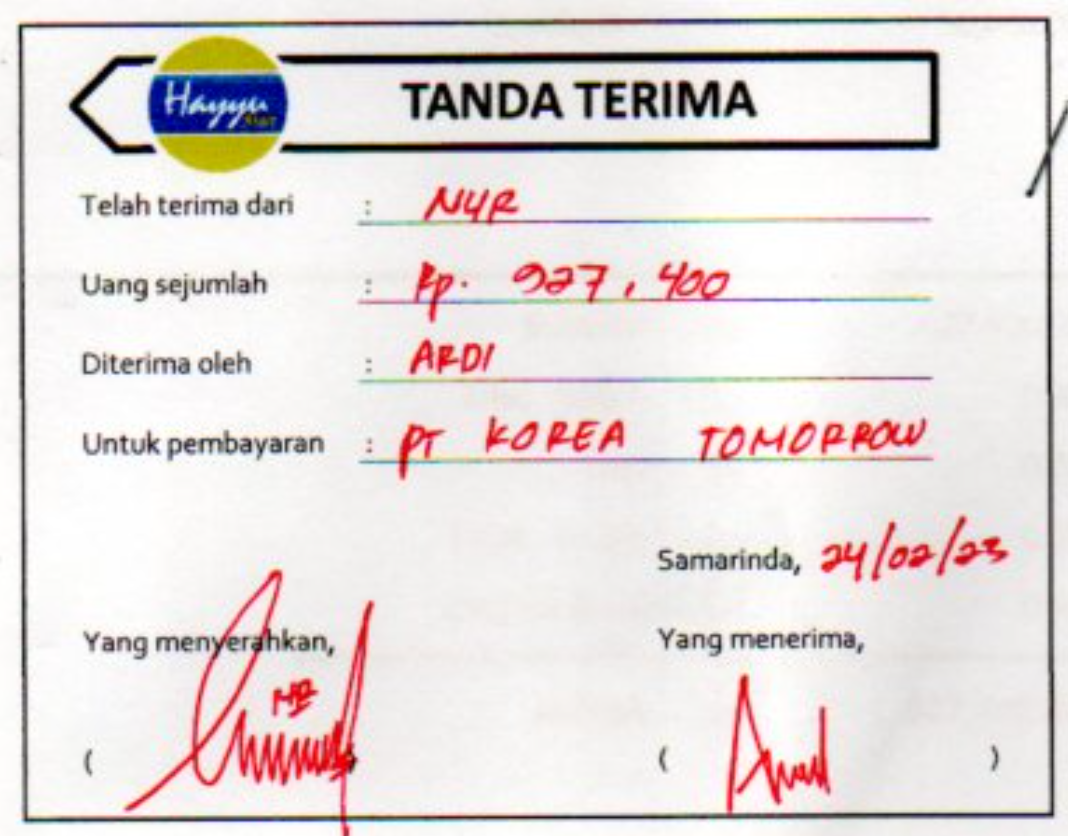 Hayyu
TANDA TERIMA
Telah terima dari : NUR
Uang sejumlah : Rp. 927,400
Diterima oleh : ARDI
Untuk pembayaran : PT KOREA TOMORROW
Samarinda, 24/02/23
Yang menyerahkan, Yang menerima,
( ( )